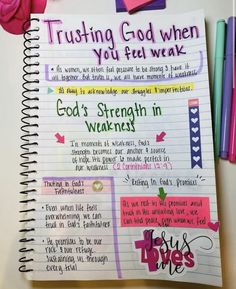 Trusting God when
you feel weak
As women, we often feel pressure to be strong & have it
all together. But truth is, we all have moments of weakness.
It's okay to acknowledge our struggles & imperfections.
God's Strength in
Weakness
In moments of weakness, God's
strength becomes our anchor & source
of hope. His power is made perfect in
our weakness. (2 Corinthians 12:9)
Trusting in God's
Faithfulness
• Even when life feels
overwhelming, we can
trust in God's faithfulness.
• He promises to be our
rock & our refuge
sustaining us through
every trial
Resting in God's Promises
As we rest in His promises and
trust in His unfailing love, we
can find peace, even when we feel
Jesus
Loves
me